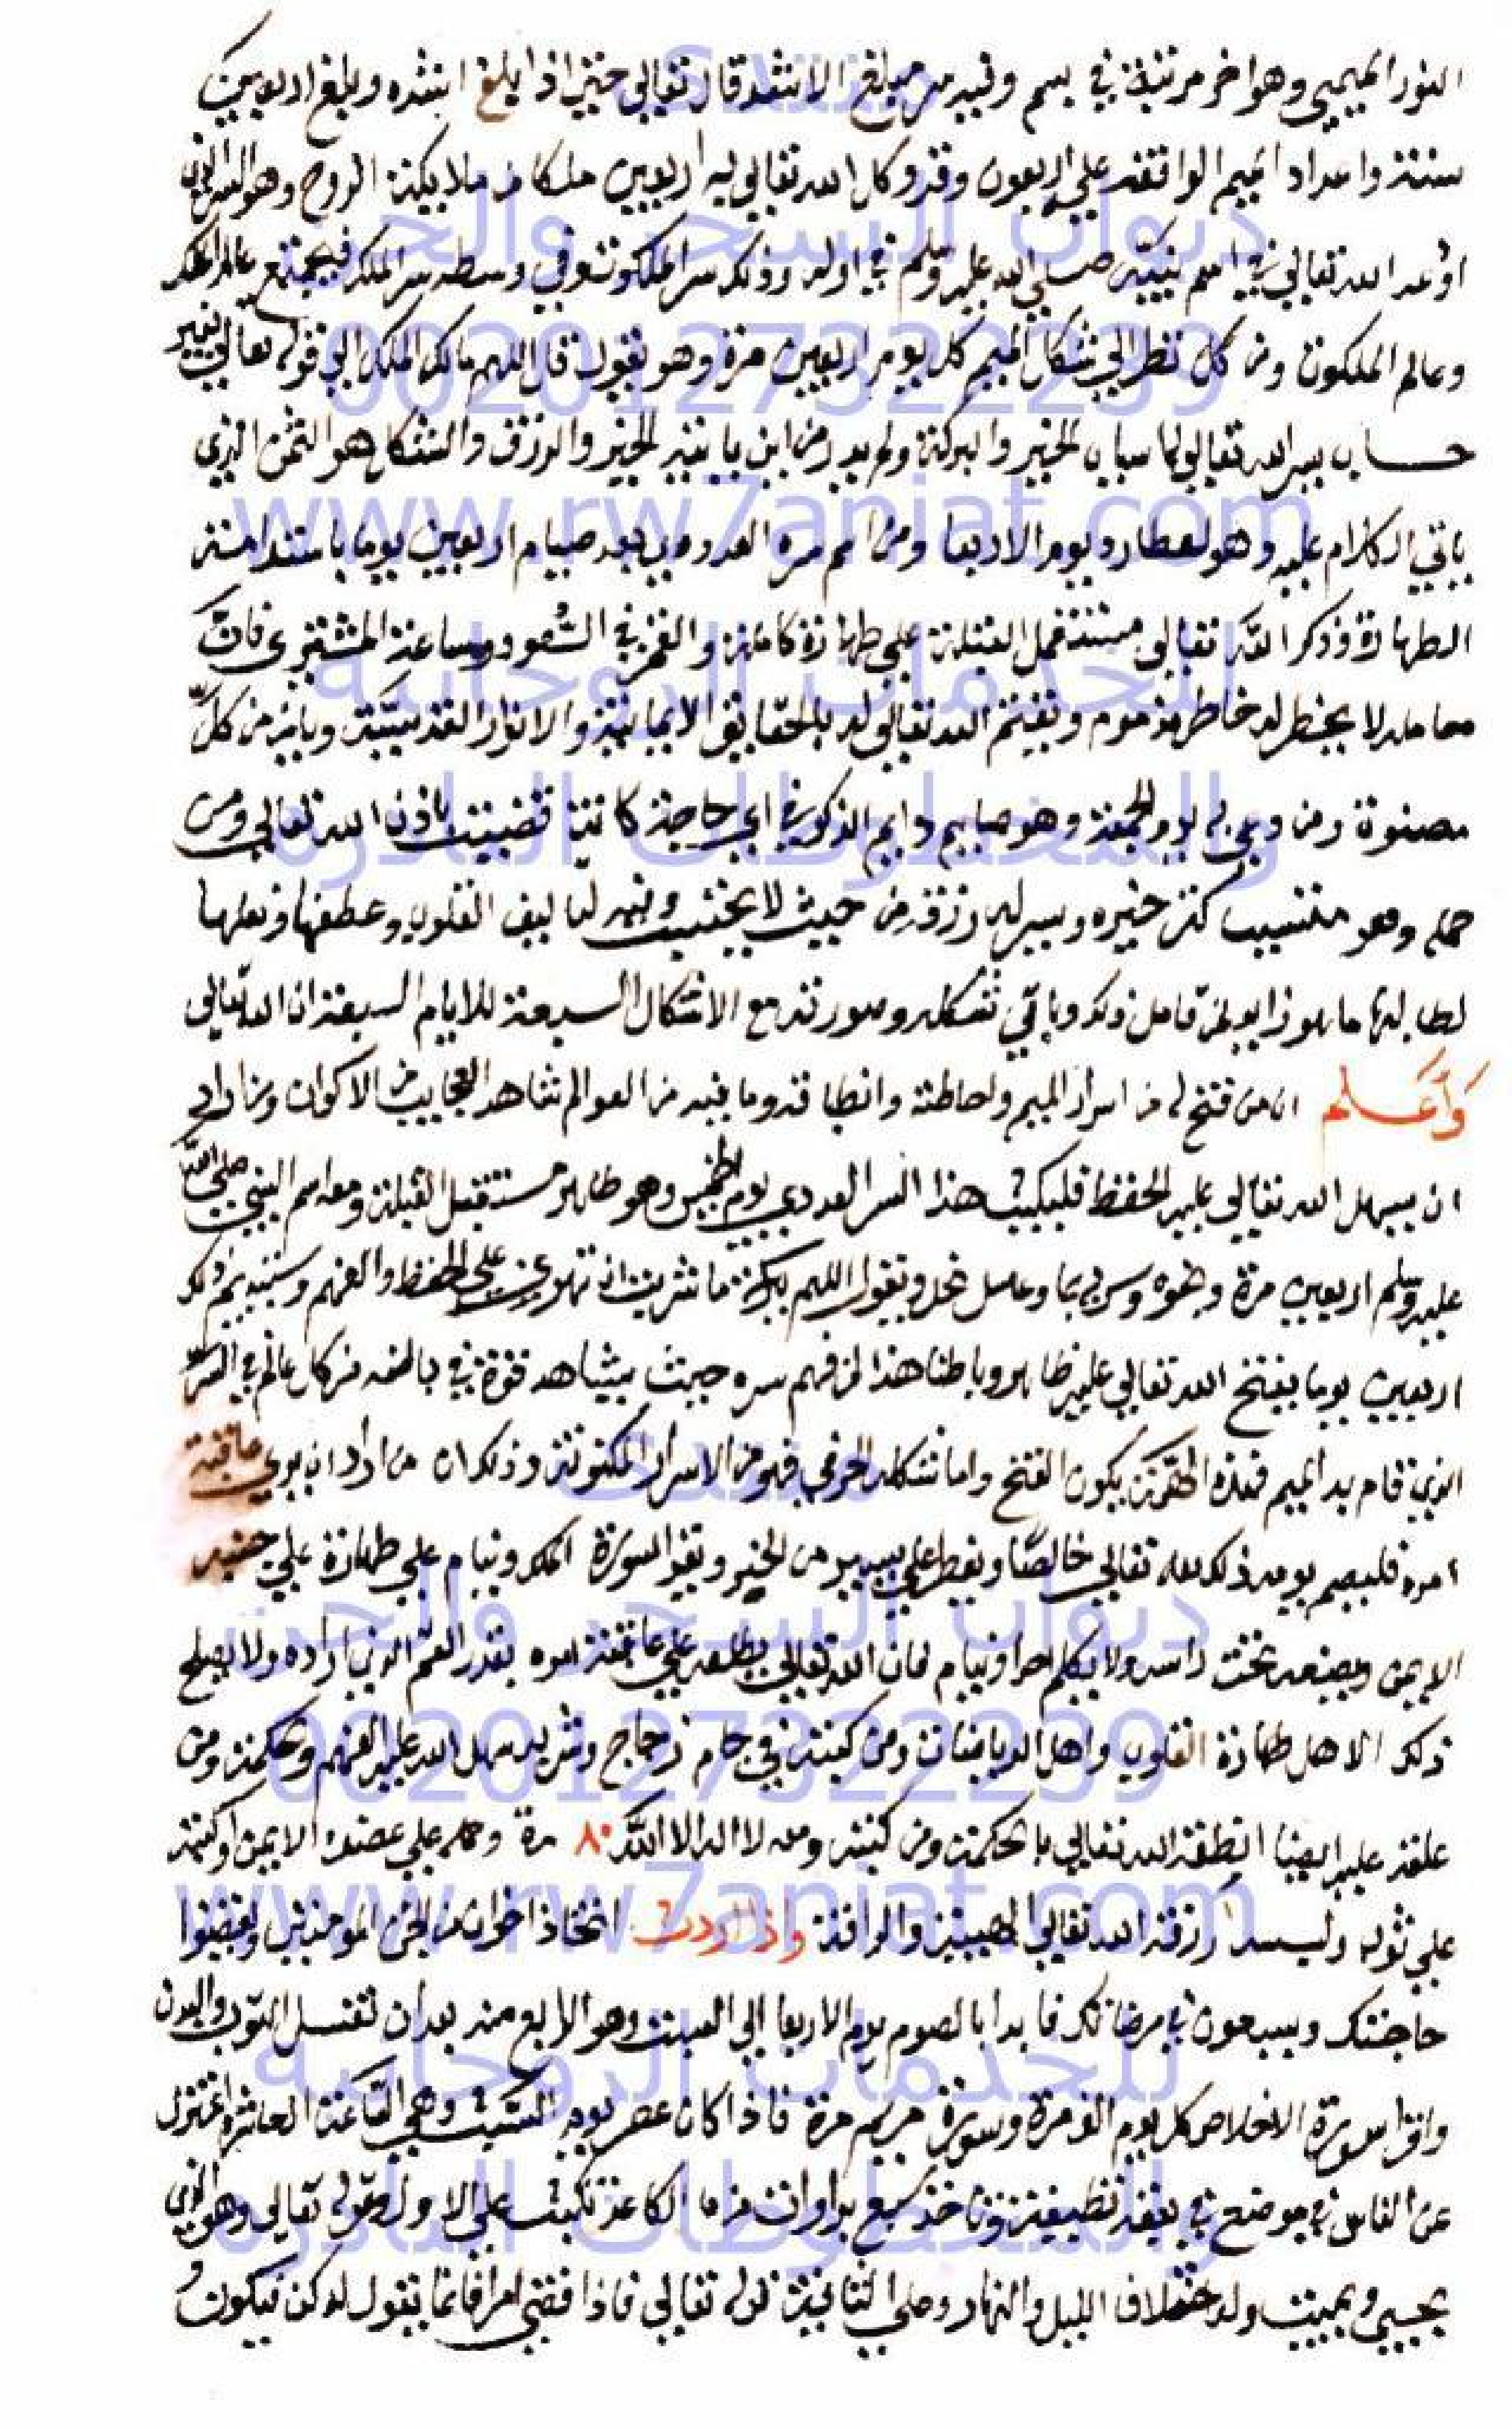 النور الميمي وهو اخر مرتبة في بسم وفيه سر مبلغ الاشد قال تعالي حتي اذا بلغ اشده وبلغ اربعين
سنة واعداد الميم الواقفة علي اربعون وقد وكل الله تعالي به اربعين ملكا من ملايكة الروح وهو السر الذي
اودعه الله تعالي في اسم نبيه صلي الله عليه وسلم في اوله وذلك سر الملكوت وفي وسطه سر الملك فيجتمع عالم الملك
وعالم الملكوت ومن نظر الي شكل الميم كل يوم اربعين مرة وهو يقول قل اللهم مالك الملك الي قوله تعالي بغير
حساب يسر الله تعالي له اسباب الخير والبركة ولم يدر من اين ياتيه الخير والرزق والشكل هو المثمن الذي
ياتي الكلام عليه وهو لعطارد ويوم الاربعا ومن رسم سره العددي بعد صيام اربعين يوما باستدامة
الطهارة وذكر الله تعالي مستقبل القبلة علي طهارة كاملة والقمر في السعود وساعة المشتري فان
حامله لا يخطر له خاطر مذموم ويفتح الله تعالي له بالحقايق الايمانية والانوار القدسية ويامن من كل
ومن دعي به يوم الجمعة وهو صايم دايم الذكر في اي حاجة كانت قضيت باذن الله تعالي ومن
حمله وهو متسبب كثر خيره ويسر له رزقه من حيث لا يحتسب وفيه لتاليف القلوب وعطفها
لطالبها ما هو زايد فتامل ذلك وياتي شكله وصورته مع الاشكال السبعة للايام السبعة ان الله تعالي
وأعلم ان من فتح له من اسرار الميم واحاطته وانطباقه وما فيه من العوالم شاهد العجايب من الاكوان ومن اراد
ان يسهل الله تعالي عليه الحفظ فليكتب هذا السر العددي يوم الخميس وهو طاهر مستقبل القبلة ومعه اسم النبي صلي الله
عليه وسلم اربعين مرة ويمحوه ويشربه بماء وعسل نحل ويقول اللهم ببركة ما شربت ان تهون علي الحفظ والفهم ويستديم ذلك
اربعين يوما يفتح الله تعالي عليه ظاهر وباطنا هذا لمن فهم سره حيث يشاهد قوة في باطنه من كل عالم في السر
الذي قام به الميم فبهذه القوة يكون الفتح واما شكله الحرفي فهو من الاسرار المكنونة وذلك ان من اراد ان يري عاقبة
امره فليصم يومه ذلك لله تعالي خالصا ويفطر علي يسير من الخبز ويقرا سورة الملك وينام علي طهارة علي جنبه
الايمن ويضعه تحت راسه ولا يكلم احدا وينام فان الله تعالي يطلعه علي عاقبة امره بقدر العلم الذي اراده ولا يصلح
ذلك الا لاهل طهارة القلوب واهل الرياضات ومن كتبه في جام زجاج وشربه سهل الله عليه الفهم والحكمة ومن
علقه عليه ايضا انطقه الله تعالي بالحكمة ومن كتبه ومعه لا اله الا الله ٨٠ مرة وحمله علي عضده الايمن او كتبه
علي ثوبه ولبسه رزقه الله تعالي الهيبة والرافة واذا اردت اتخاذ اخوان من الجن المومنين يقضوا
حاجتك ويسعون في مرضاتك فابدا بالصوم يوم الاربعا الي السبت وهو الرابع منه بعد ان تغسل الثوب والبدن
واقرا سورة الاخلاص كل يوم الف مرة وسورة مريم مرة فاذا كان عصر يوم السبت وهي الساعة العاشرة اعتزل
عن الناس في موضع في بقعة نظيفة وتاخذ سبع براوات من الكاغد تكتب علي الاول قوله تعالي وهو الذي
يحيي ويميت وله اختلاف الليل والنهار وعلي الثانية قوله تعالي فاذا قضي امرا فانما يقول له كن فيكون
منتدى
ديوان السحر والجن
00201273222239
www.rw7aniat.com
للخدمات الروحانية
والمخطوطات النادرة
منتدى
ديوان السحر والجن
00201273222239
www.rw7aniat.com
للخدمات الروحانية
والمخطوطات النادرة